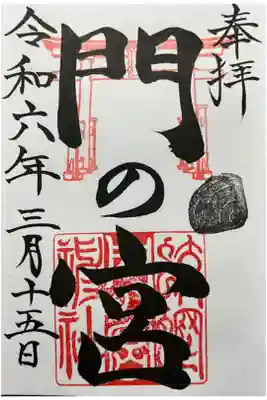 奉拝
門の宮
令和六年三月十五日